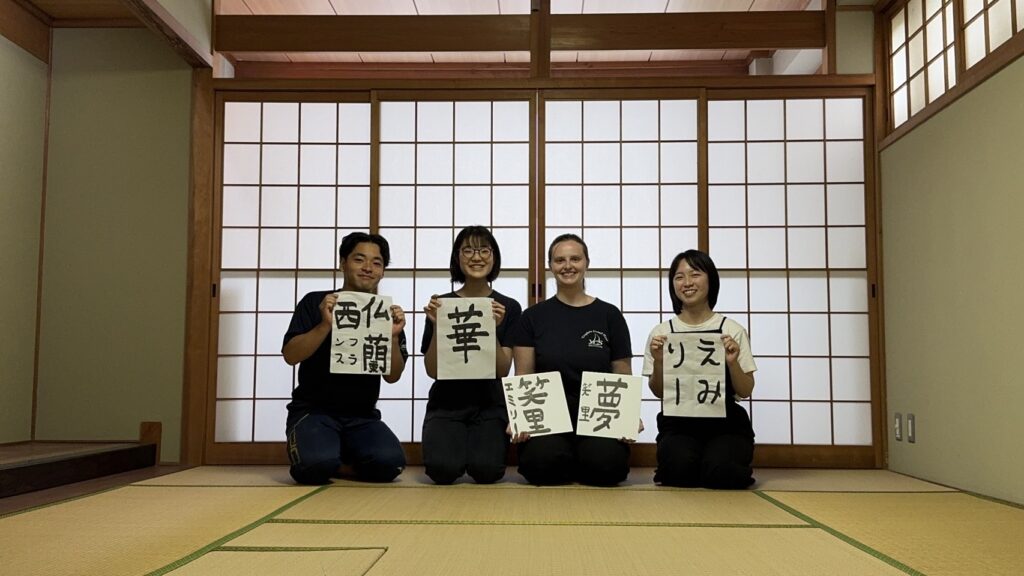 仏蘭
西
フラ
ンス
華
笑里
エミリー
夢
笑里
えみ
りー